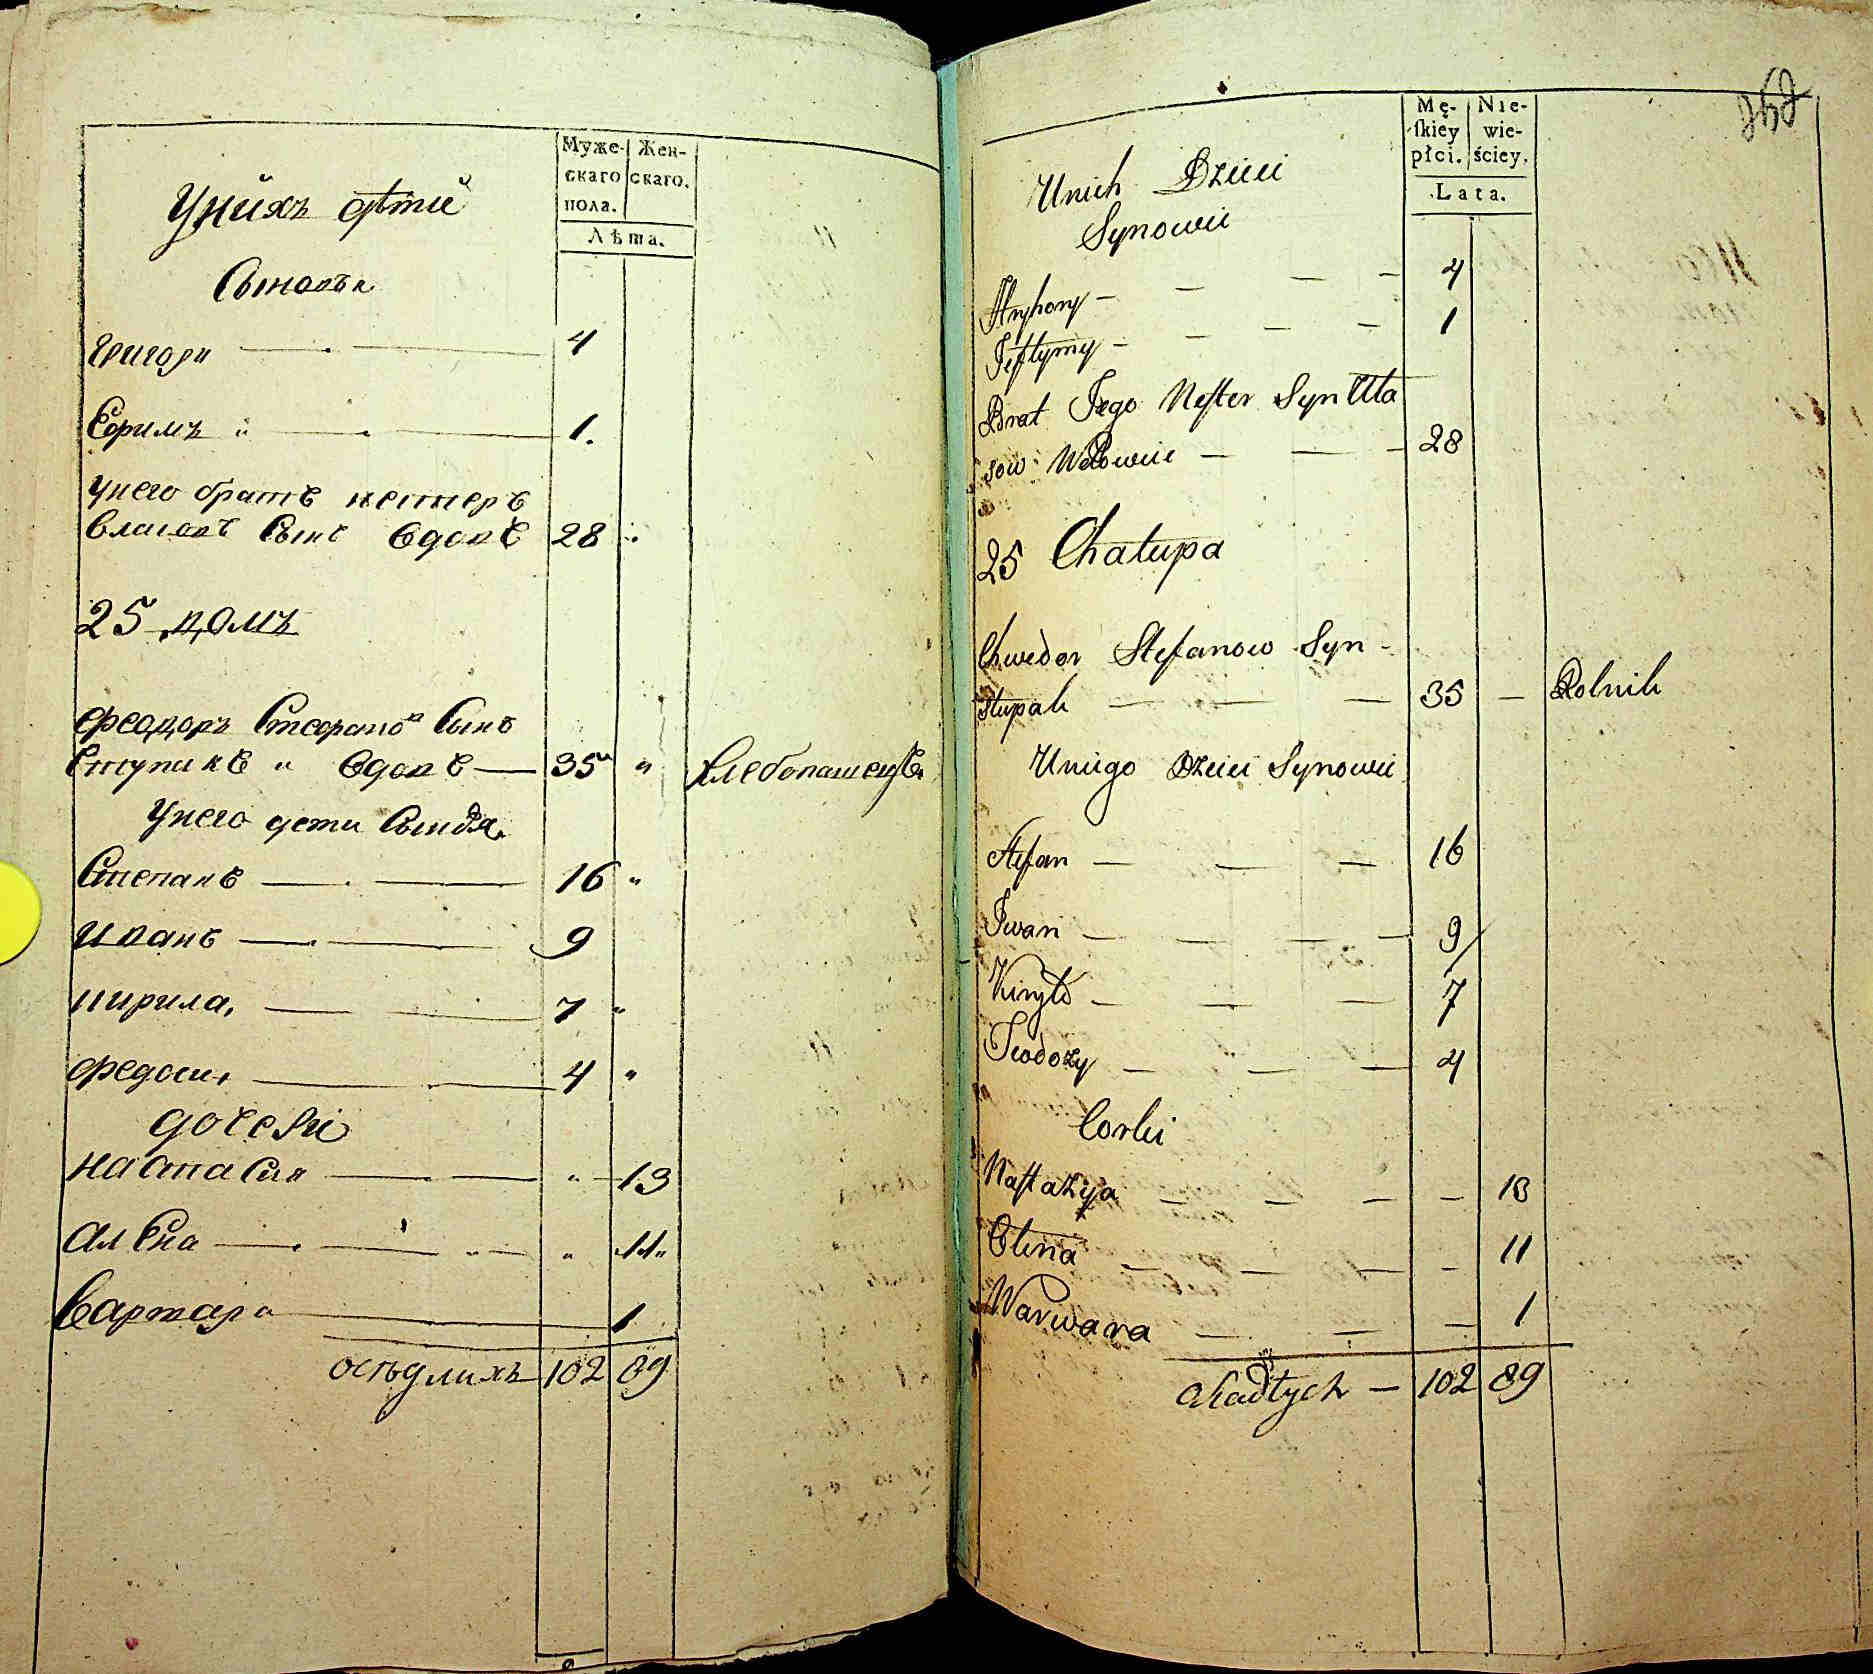 Муже-
скаго
пола.
Жен-
скаго.
Лѣта.
Унихъ дѣти
Сыновья
Григори 4
Ефимъ 1.
Унего братъ нестеръ
Власовъ Сынъ вдовъ 28
25 домъ
Феодоръ Стефановъ Сынъ
Ступакъ вдовъ 35 Хлебопашецъ
Унего дети Сыновя
Степанъ 16
Иванъ 9
Кирила 7
Федоси 4
дочери
Настасия 13
Алена 11
Варвара 1
осѣдлихъ 102 89
Mę-
ſkiey
płci.
Nie-
wie-
ściey.
Lata.
Unich Dzieci
Synowie
Hryhory 4
Jeftymy 1
Brat Jego Neſter Syn Ula
sow Wdowiec 28
25 Chałupa
Chwedor Stefanow Syn
Stupak 35 Rolnik
Uniego Dzieci Synowie
Stefan 16
Jwan 9
Kiryło 7
Teodozy 4
Corki
Naſtazya 13
Elena 11
Warwara 1
102 89